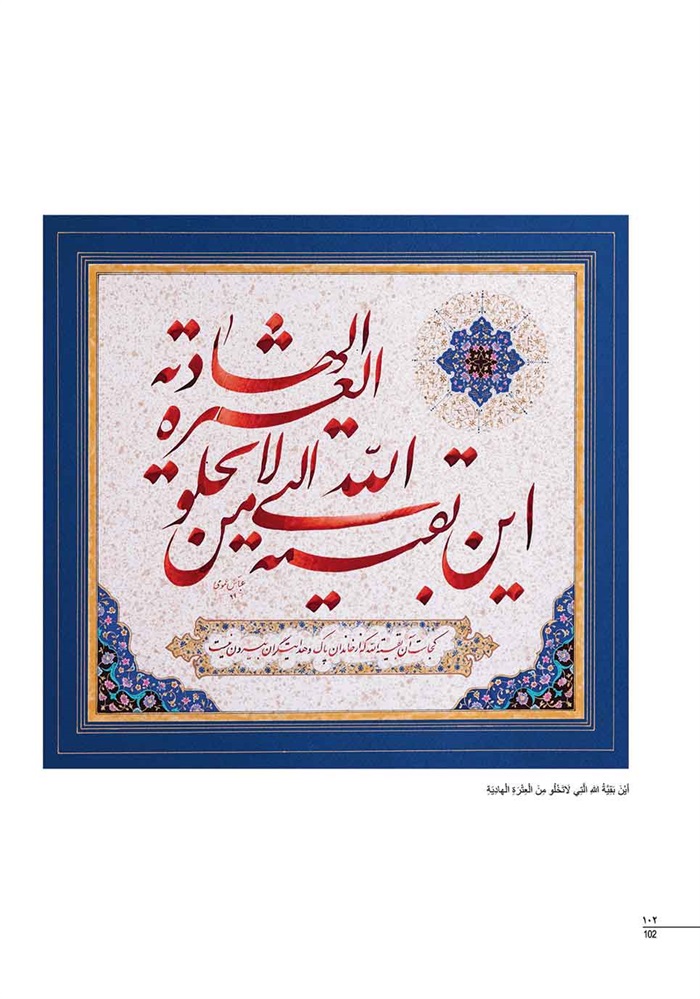 این بقیه الله التی لا تخلو من
العتره الهادیه
عباس
کجاست آن بقیة الله که از خاندان پاک و هدایتگران بیرون نیست
أَيْنَ بَقِيَّةُ اللهِ الَّتِي لَاتَخْلُو مِنَ الْعِتْرَةِ الْهادِيَةِ
۱۰۲
102